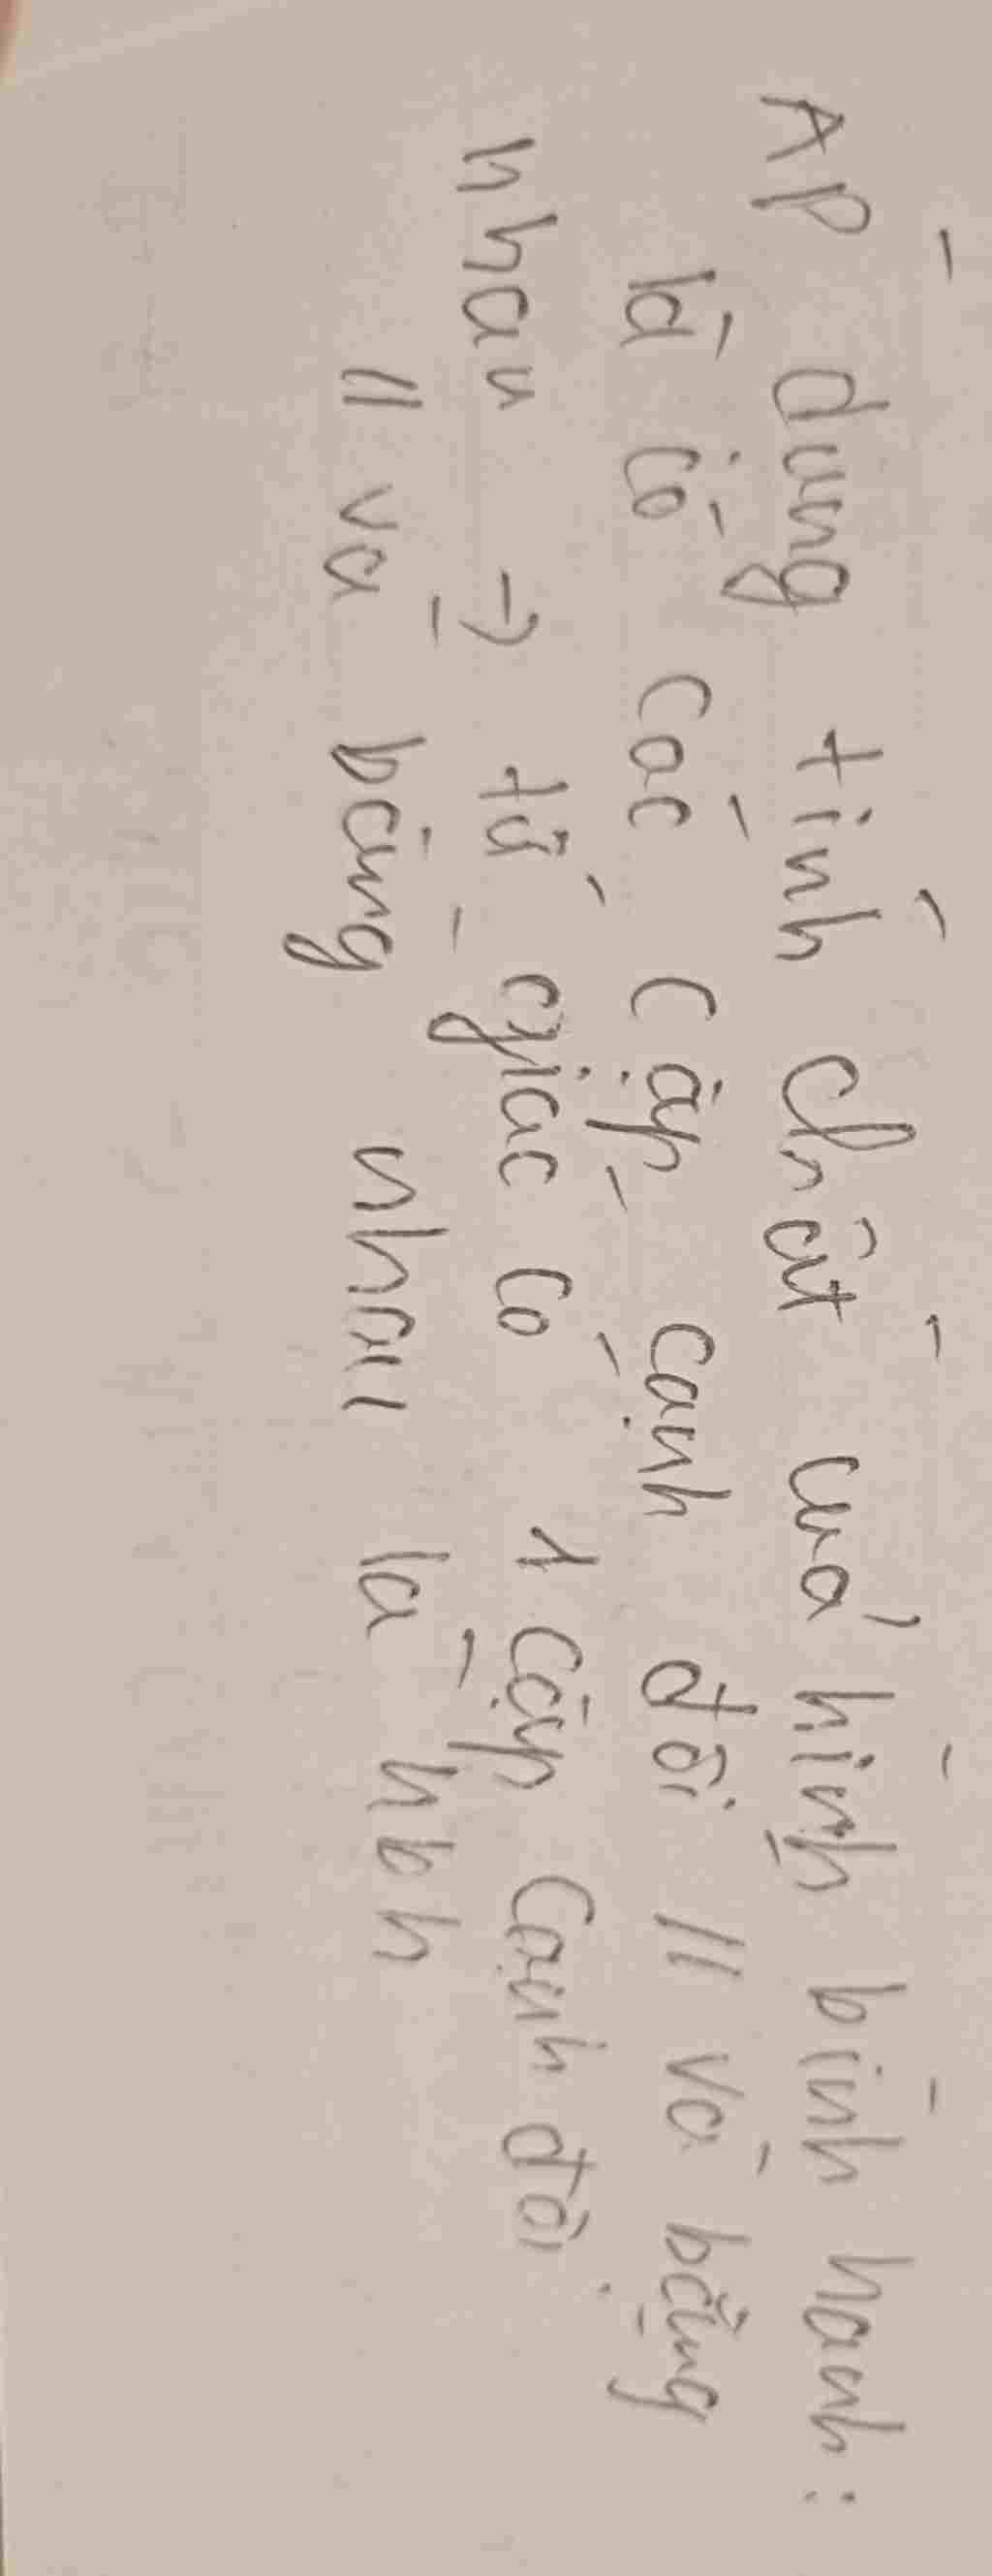 Áp dụng tính chất của hình bình hành:
là có các cặp cạnh đối // và bằng
nhau → tứ giác có 1 cặp cạnh đối
// và bằng nhau là hbh